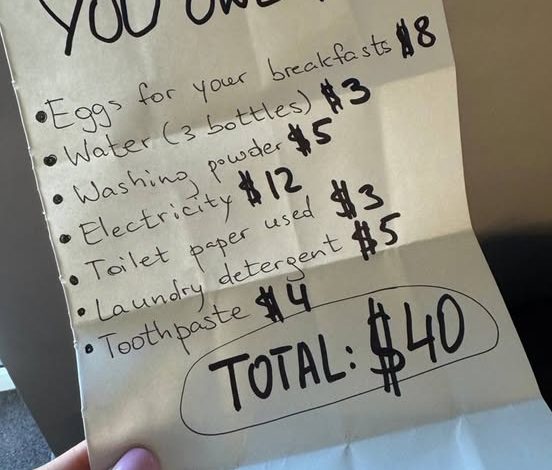 YOU OWE
• Eggs for your breakfasts $8
• Water (3 bottles) $3
• Washing powder $5
• Electricity $12
• Toilet paper used $3
• Laundry detergent $5
• Toothpaste $4
TOTAL: $40